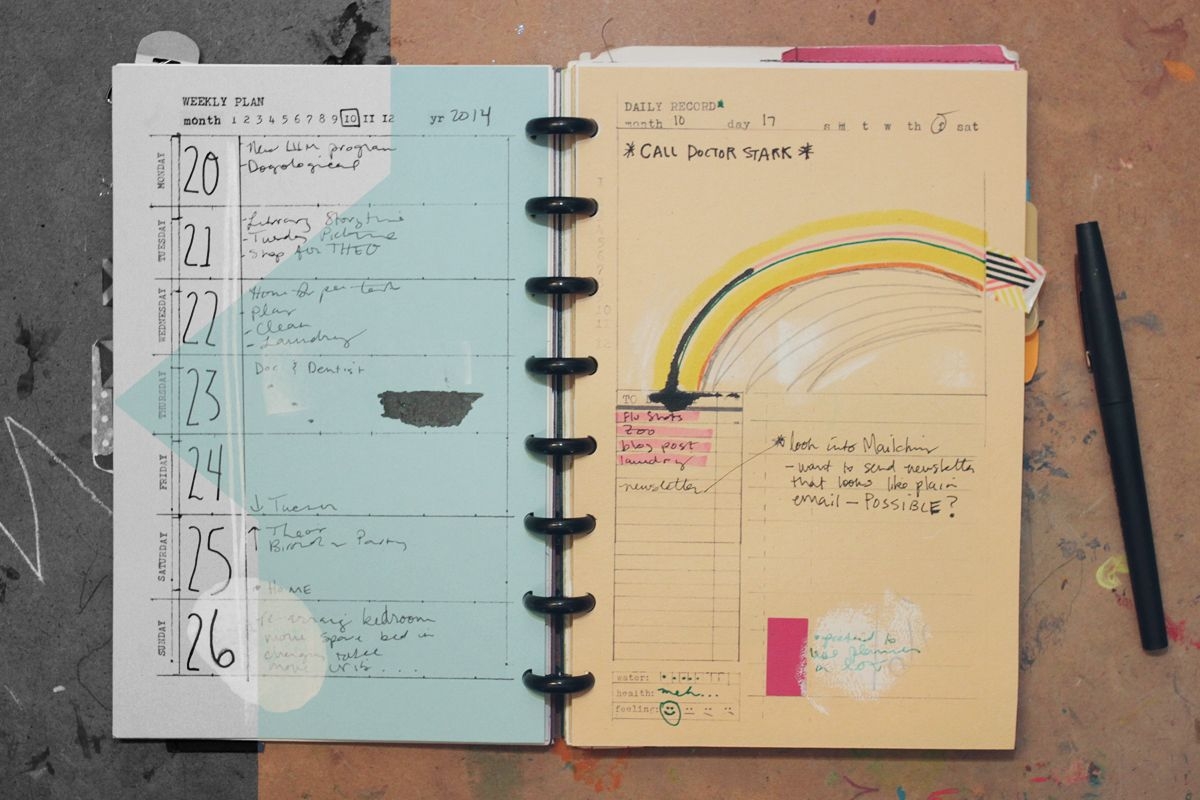 WEEKLY PLAN
month 1 2 3 4 5 6 7 8 9 10 11 12 yr 2014
MONDAY
20
- New program
- Dogological
TUESDAY
21
- Library Storytime
- Tuesday Picture
- Shop for THEO
WEDNESDAY
22
- Play
- Clean
- Laundry
THURSDAY
23
Doc & Dentist
FRIDAY
24
↓
SATURDAY
25
↑ Theo
Birthday Party
HOME
SUNDAY
26
bedroom
move spare bed in
changing table
move
DAILY RECORD*
month 10 day 17 s m t w th f sat
*CALL DOCTOR STARK*
TO
flu shots
Zoo
blog post
laundry
newsletter
* look into Mailchimp
- want to send newsletter
that looks like plain
email - POSSIBLE?
pretend to
use planner
water:
health: meh...
feeling: